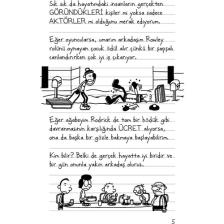 Sık sık da hayatımdaki insanların gerçekten
GÖRÜNDÜKLERİ kişiler mi yoksa sadece
AKTÖRLER mi olduğunu merak ediyorum.
Eğer oyuncularsa, umarım arkadaşım Rowley
rolünü oynayan çocuk ödül alır çünkü bir şapşalı
canlandırırken çok iyi iş çıkarıyor.
Eğer ağabeyim Rodrick de tam bir hödük gibi
davranmasının karşılığında ÜCRET alıyorsa,
ona da başka bir gözle bakmaya başlayabilirim.
Kim bilir? Belki de gerçek hayatta iyi biridir ve
bir gün onunla yakın arkadaş oluruz.
5